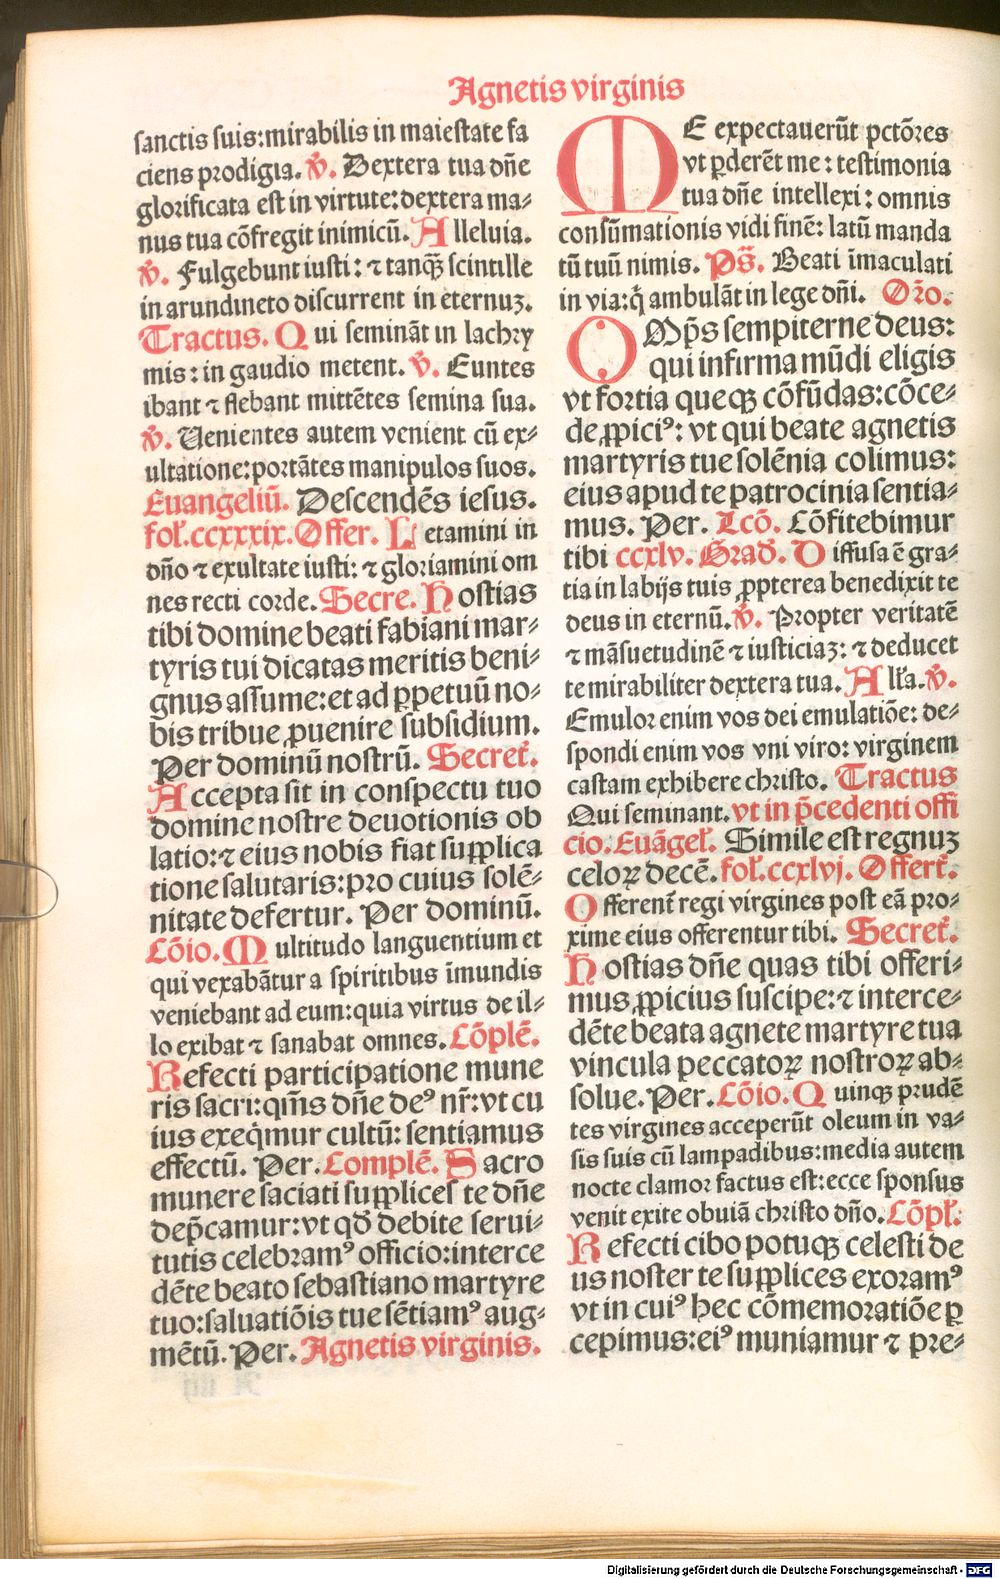 Agnetis virginis
sanctis suis:mirabilis in maiestate fa
ciens prodigia. ℣. Dextera tua dn̄e
glorificata est in virtute:dextera ma⸗
nus tua cōfregit inimicū. Alleluia.
℣. Fulgebunt iusti: ⁊ tanqꝫ scintille
in arundineto discurrent in eternuꝫ.
Tractus. Qui semināt in lachry
mis: in gaudio metent. ℣. Euntes
ibant ⁊ flebant mittētes semina sua.
℣. Uenientes autem venient cū ex⸗
ultatione:portātes manipulos suos.
Euangeliū. Descendēs iesus.
fol. ccxxxix. Offer. Letamini in
dn̄o ⁊ exultate iusti: ⁊ gloriamini om
nes recti corde. Secre. Hostias
tibi domine beati fabiani mar⸗
tyris tui dicatas meritis beni⸗
gnus assume:et ad ꝑpetuū no⸗
bis tribue ꝓuenire subsidium.
Per dominū nostrū. Secret̄.
Accepta sit in conspectu tuo
domine nostre deuotionis ob
latio:⁊ eius nobis fiat supplica
tione salutaris:pro cuius solē⸗
nitate defertur. Per dominū.
Cōio. Multitudo languentium et
qui vexabātur a spiritibus īmundis
veniebant ad eum:quia virtus de il⸗
lo exibat ⁊ sanabat omnes. Cōplē.
Refecti participatione mune
ris sacri:qm̄s dn̄e deꝰ nr̄:vt cu
ius exeq̄mur cultū: sentiamus
effectū. Per. Complē. Sacro
munere saciati supplices te dn̄e
dep̄camur:vt qd̄ debite serui⸗
tutis celebramꝰ officio:interce
dēte beato sebastiano martyre
tuo:saluatiōis tue sētiamꝰ aug⸗
mētū. Per. Agnetis virginis.
ME expectauerūt pctōres
vt ꝑderēt me: testimonia
tua dn̄e intellexi: omnis
consūmationis vidi finē: latū manda
tū tuū nimis. Ps̄. Beati īmaculati
in via:q̄ ambulāt in lege dn̄i. Or̄o.
OMp̄s sempiterne deus:
qui infirma mūdi eligis
vt fortia queqꝫ cōfūdas:cōce⸗
de ꝓpiciꝰ: vt qui beate agnetis
martyris tue solēnia colimus:
eius apud te patrocinia sentia⸗
mus. Per. Lcō. Cōfitebimur
tibi ccxlv. Grad̄. Diffusa ē gra⸗
tia in labijs tuis ꝓpterea benedixit te
deus in eternū. ℣. Propter veritatē
⁊ māsuetudinē ⁊ iusticiaꝫ: ⁊ deducet
te mirabiliter dextera tua. All̄a. ℣.
Emulor enim vos dei emulatiōe: de⸗
spondi enim vos vni viro: virginem
castam exhibere christo. Tractus
Qui seminant. vt in p̄cedenti offi
cio. Euāgel̄. Simile est regnuꝫ
celoꝝ decē. fol. ccxlvj. Offert̄.
Offerent̄ regi virgines post eā pro⸗
xime eius offerentur tibi. Secret̄.
Hostias dn̄e quas tibi offeri⸗
mus ꝓpicius suscipe:⁊ interce⸗
dēte beata agnete martyre tua
vincula peccatoꝝ nostroꝝ ab⸗
solue. Per. Cōio. Quinqꝫ prudē
tes virgines acceperūt oleum in va⸗
sis suis cū lampadibus:media autem
nocte clamor factus est:ecce sponsus
venit exite obuiā christo dn̄o. Cōpl̄.
Refecti cibo potuqꝫ celesti de
us noster te supplices exoramꝰ
vt in cuiꝰ hec cōmemoratiōe ꝑ
cepimus:eiꝰ muniamur ⁊ pre⸗
Digitalisierung gefördert durch die Deutsche Forschungsgemeinschaft - DFG